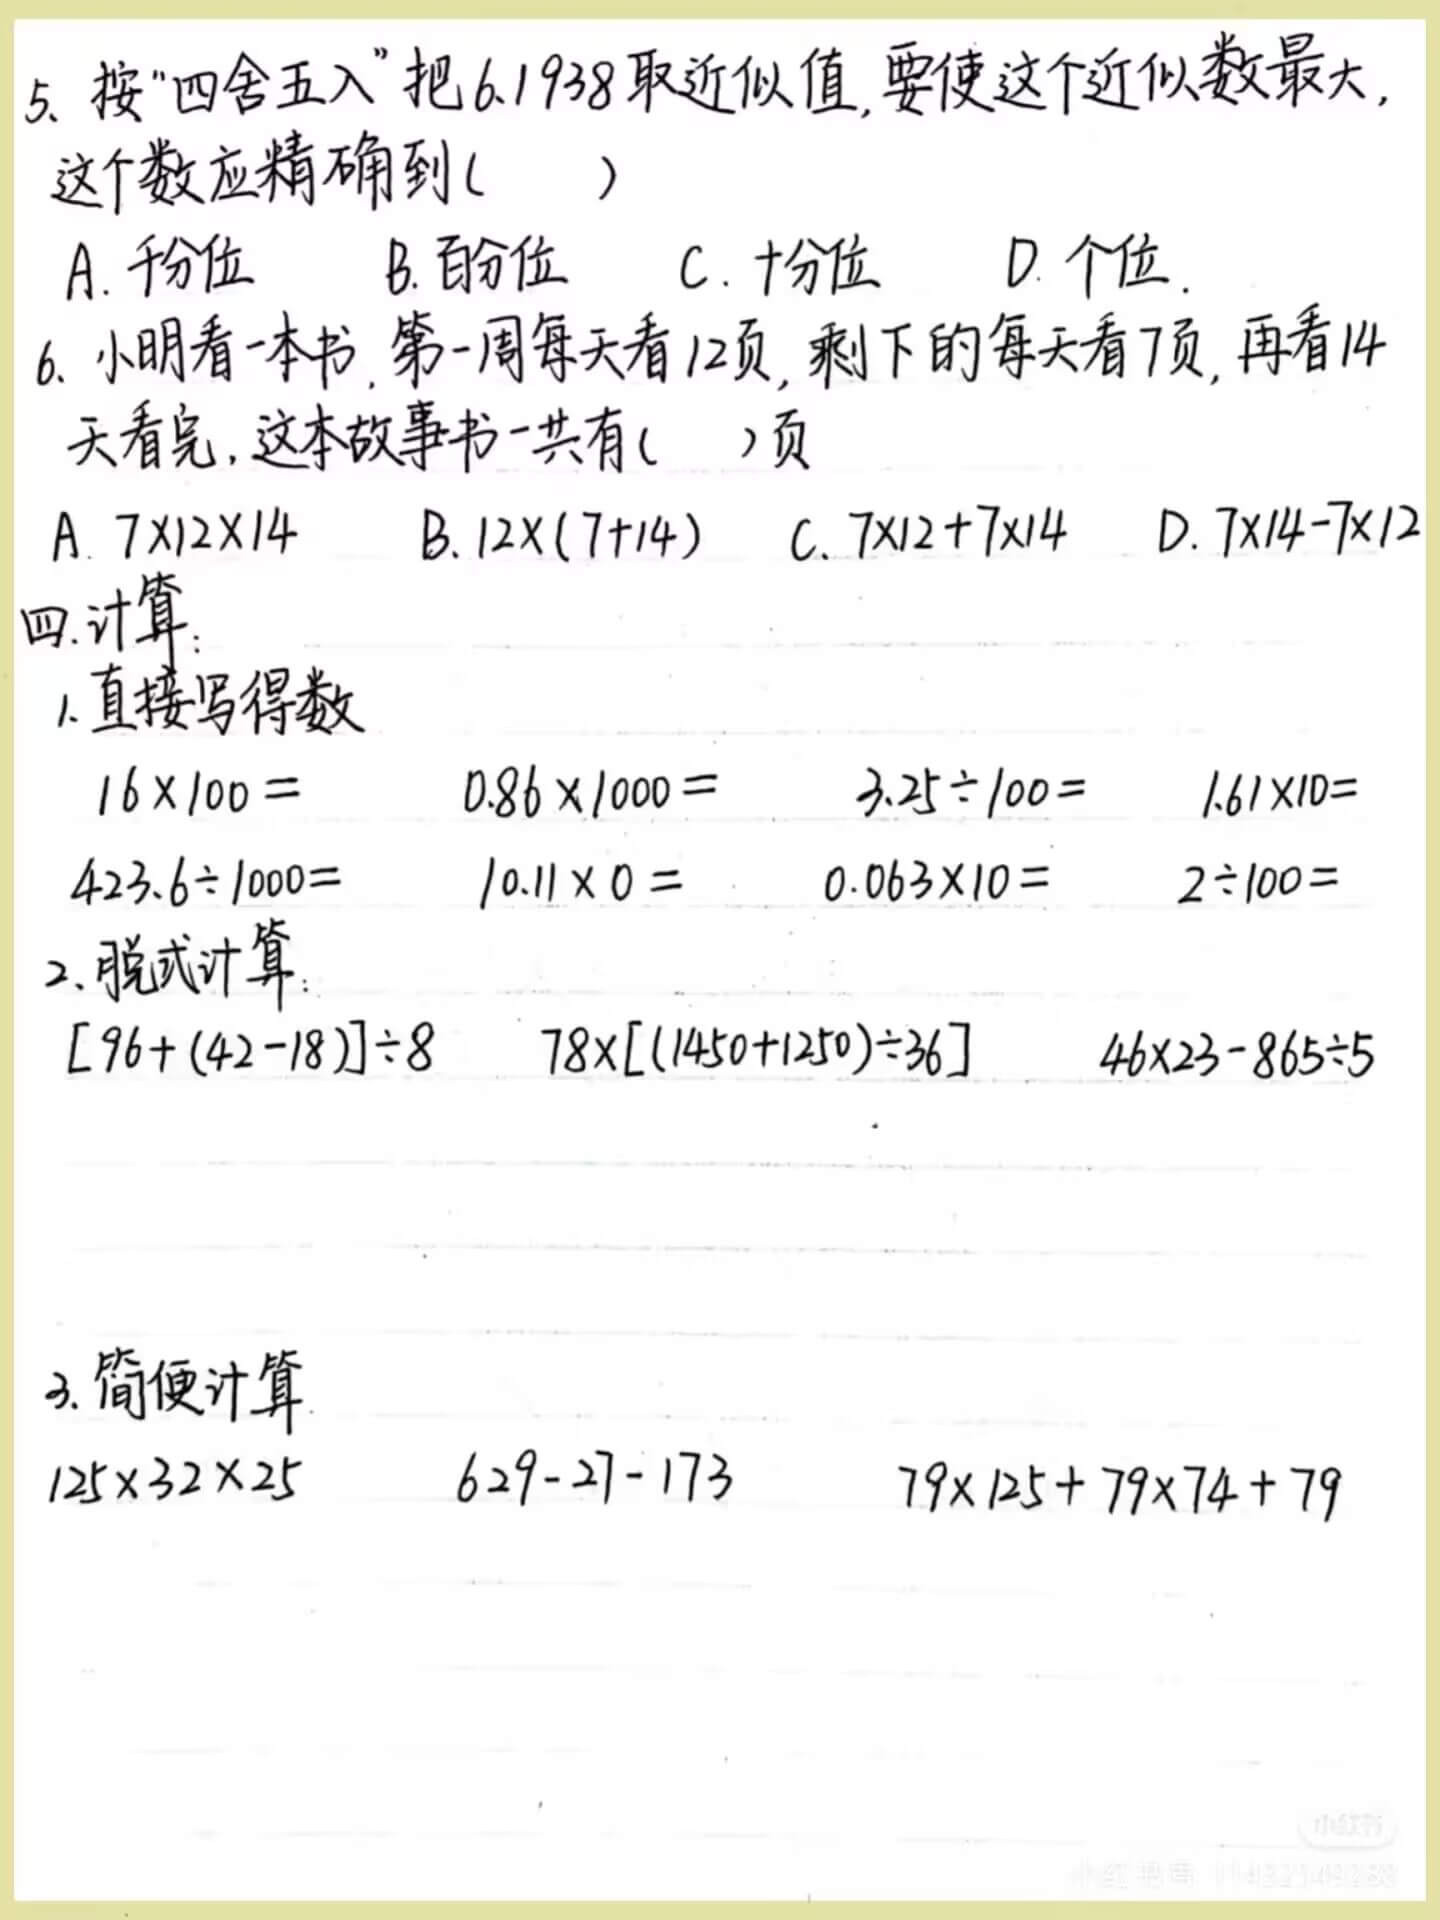 5、按“四舍五入”把6.1938取近似值,要使这个近似数最大,
这个数应精确到( )
A. 千分位 B. 百分位 C. 十分位 D. 个位.
6、小明看一本书,第一周每天看12页,剩下的每天看7页,再看14
天看完,这本故事书一共有( )页
A. 7×12×14 B. 12×(7+14) C. 7×12+7×14 D. 7×14-7×12
四.计算:
1.直接写得数
16×100= 0.86×1000= 3.25÷100= 1.61×10=
423.6÷1000= 10.11×0= 0.063×10= 2÷100=
2、脱式计算:
[96+(42-18)]÷8 78×[(1450+1250)÷36] 46×23-865÷5
3.简便计算.
125×32×25 629-27-173 79×125+79×74+79
小红书